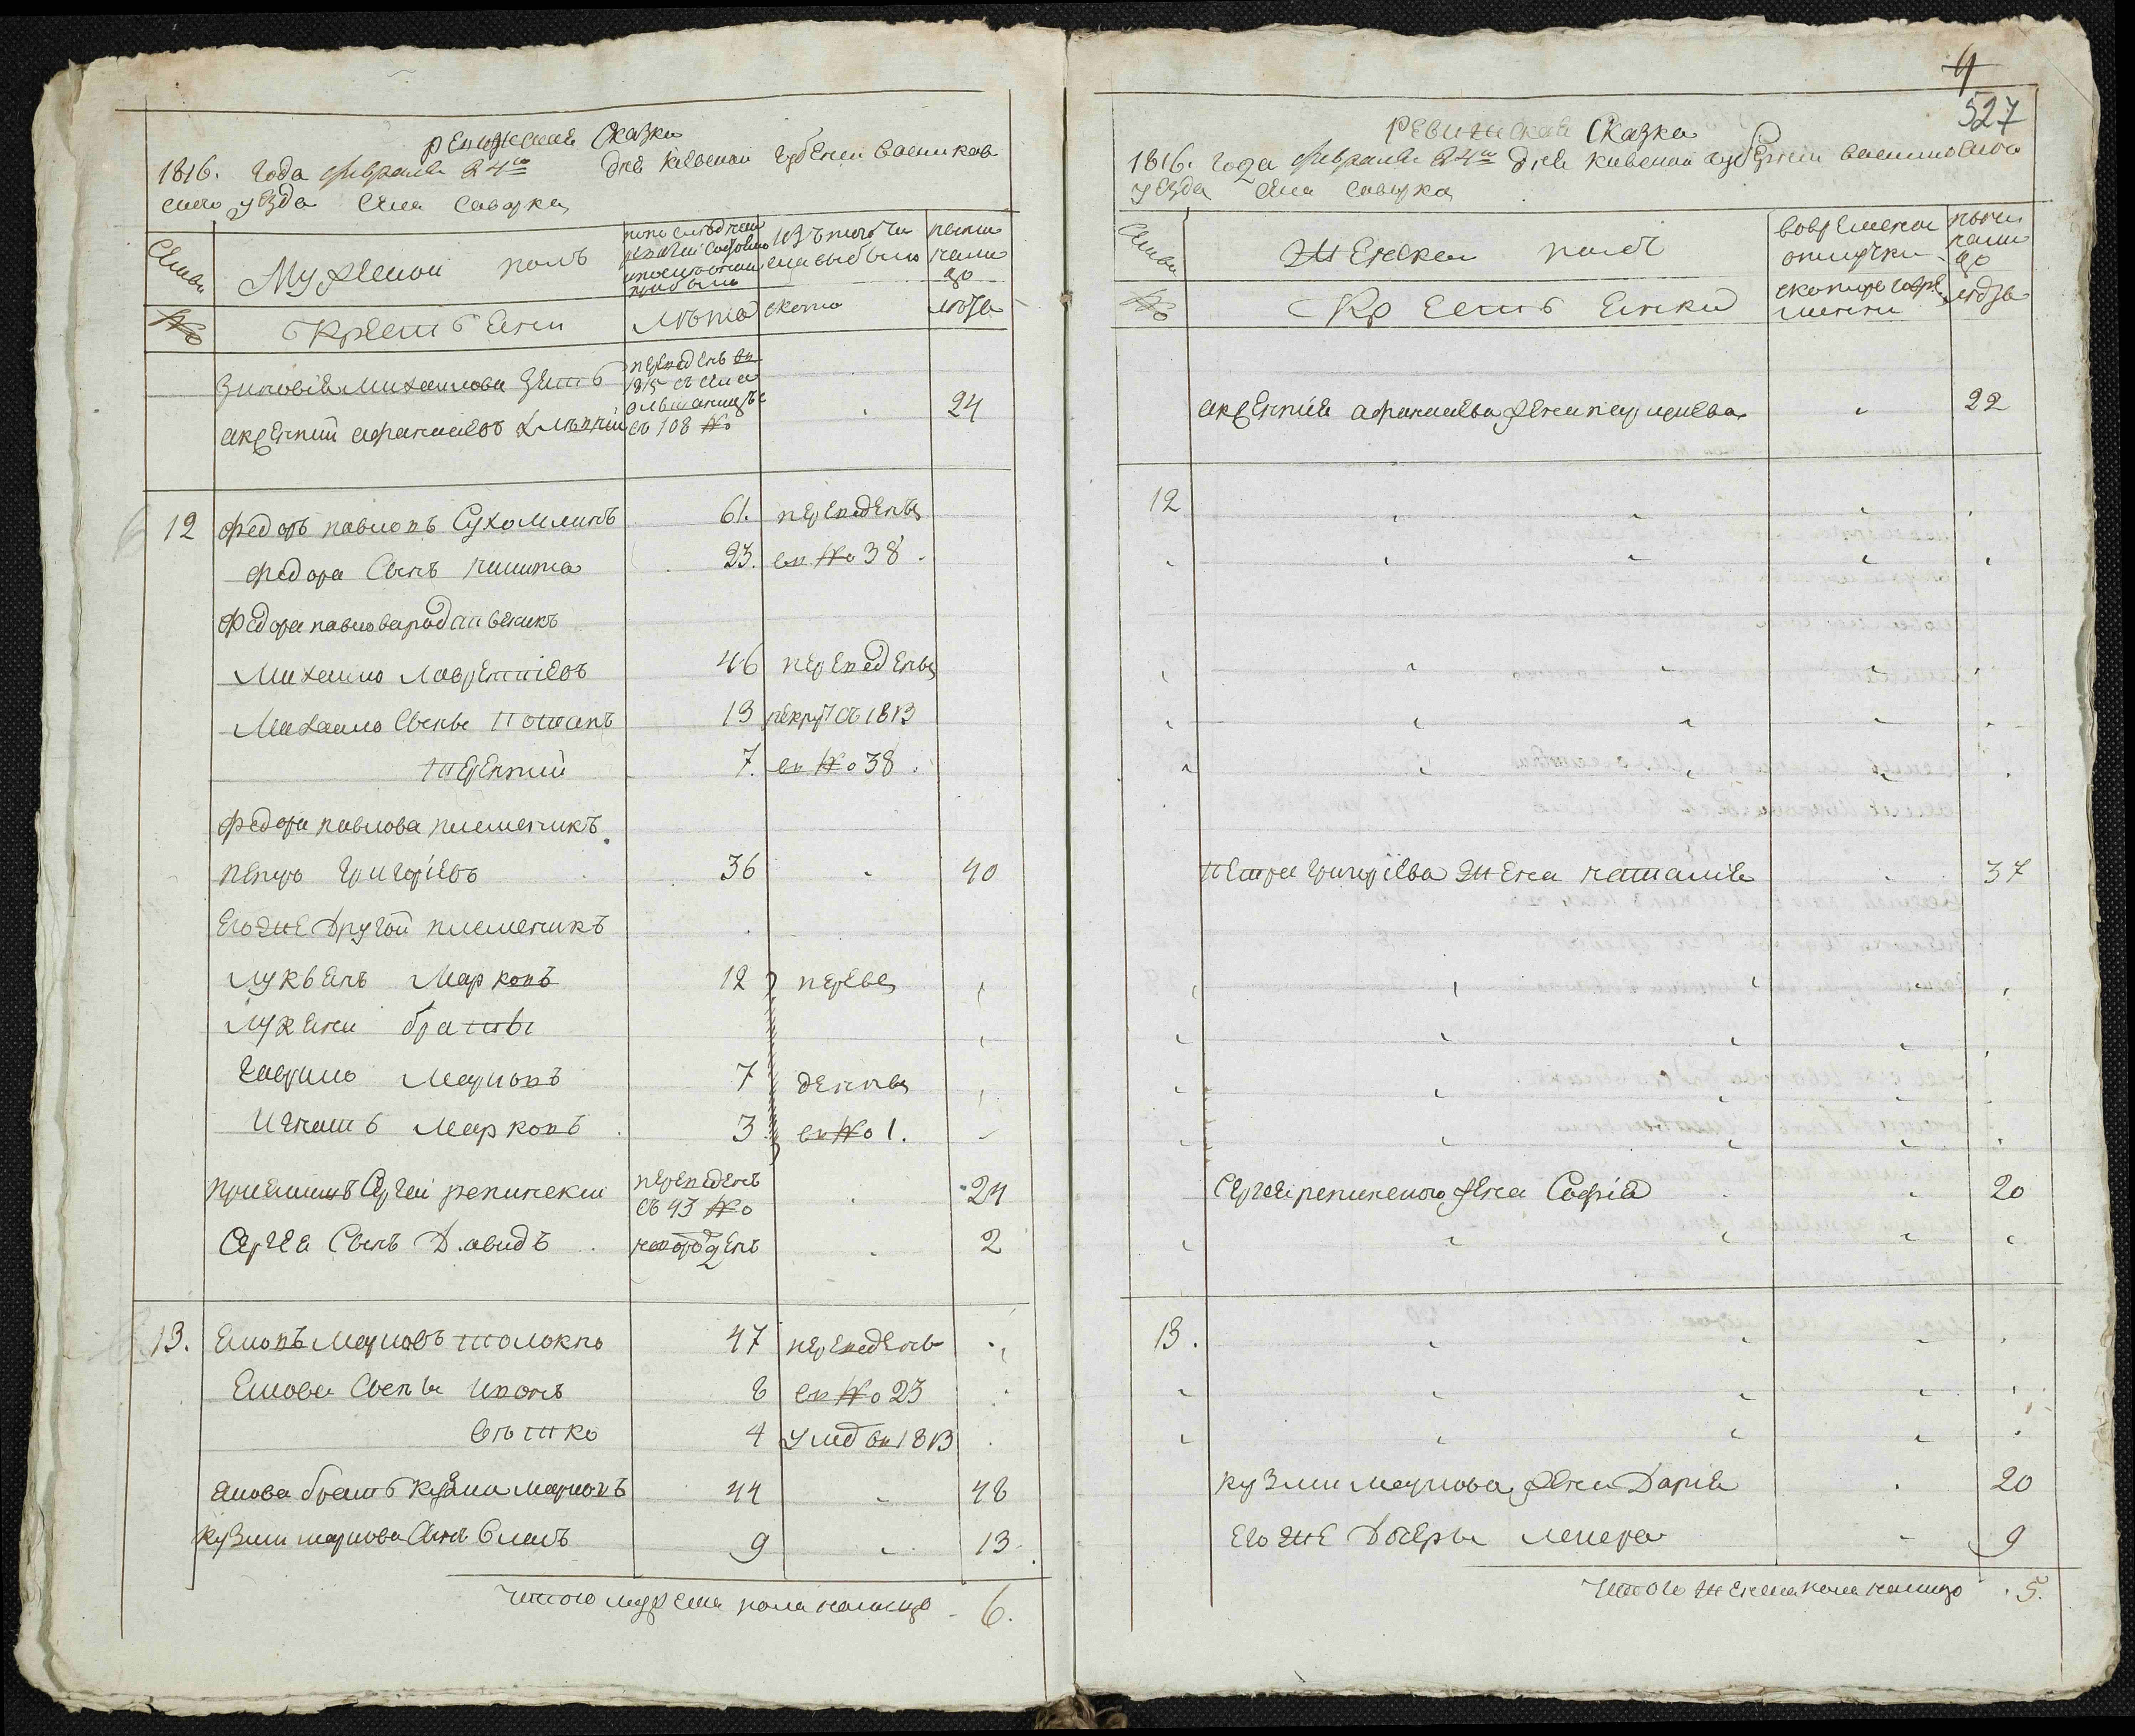 ревижская Сказка
1816. года февраля 24го дня киевской губернии Василков
ского уезда села саварка
Семьи
Мужеской полъ
по последней ревизии состояло и после оной прибыло
изъ того числа выбыло
ныне на лицо
№
Крестьяни
Лѣта
когда
лѣта
Зиновія михаилова зять
переведенъ въ
1815 съ села
ольшаницъ
аксентий афанасіевъ
съ 108 №
24
12 федоръ павловъ Сухомлинъ 61. переведены
федора Сынъ никита 23. въ № 38
Федора павлова
Михаило Лаврентіевъ 46 переведены
Михаила Сыны Потапъ 13 рекрутъ 1813
Терентий 7. въ № 38.
федора павлова племеникъ
петръ григоріевъ 36 40
Его же Другой племеникъ
лукьянъ Марковъ 12 переве
лукяна братьы
гаврило Марковъ 7 дены
Игнатъ Марковъ 3 въ № 1.
приймитъ Сергей репински переведенъ
съ 43 № 24
Сергея Сынъ Давидъ новорожденъ 2
13. Емовъ Марковъ толокно 47 переведены
Емова Сыны 8 въ № 23
4 умер въ 1813
Якова братъ Кузма Марковъ 44 48
Кузми маркова Сынъ Власъ 9 13
Итого мужеска пола налицо 6.
4
527
Ревижская Сказка
1816. года февраля 24го дня киевской губернии василковского
уезда села саварка
Семьи
Женска полъ
во временной отлучке
ныне на лицо
№
Крестьянки
с которого времени
лѣта
акcентия афанасіева жена 22
12
Петра григоріева жена наталия 37
Сергея репинского жена Софія 20
13.
Кузми маркова жена Дарія 20
Его же Дочеръ 9
Итого женска пола налицо 5.